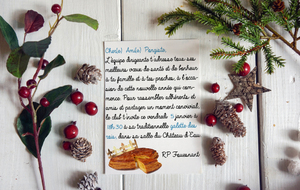 Cher(e) Ami(e) Pongiste,
L'équipe dirigeante t'adresse tous ses
meilleurs vœux de santé et de bonheur
à ta famille et à tes proches, à l'occa
sion de cette nouvelle année qui com-
mence. Pour rassembler adhérents et
amis et partager un moment convivial,
le club t'invite ce vendredi 5 janvier à
18h 30 à sa traditionnelle galette des
rois, dans sa salle du Château d'Eau
RP Fouesnant